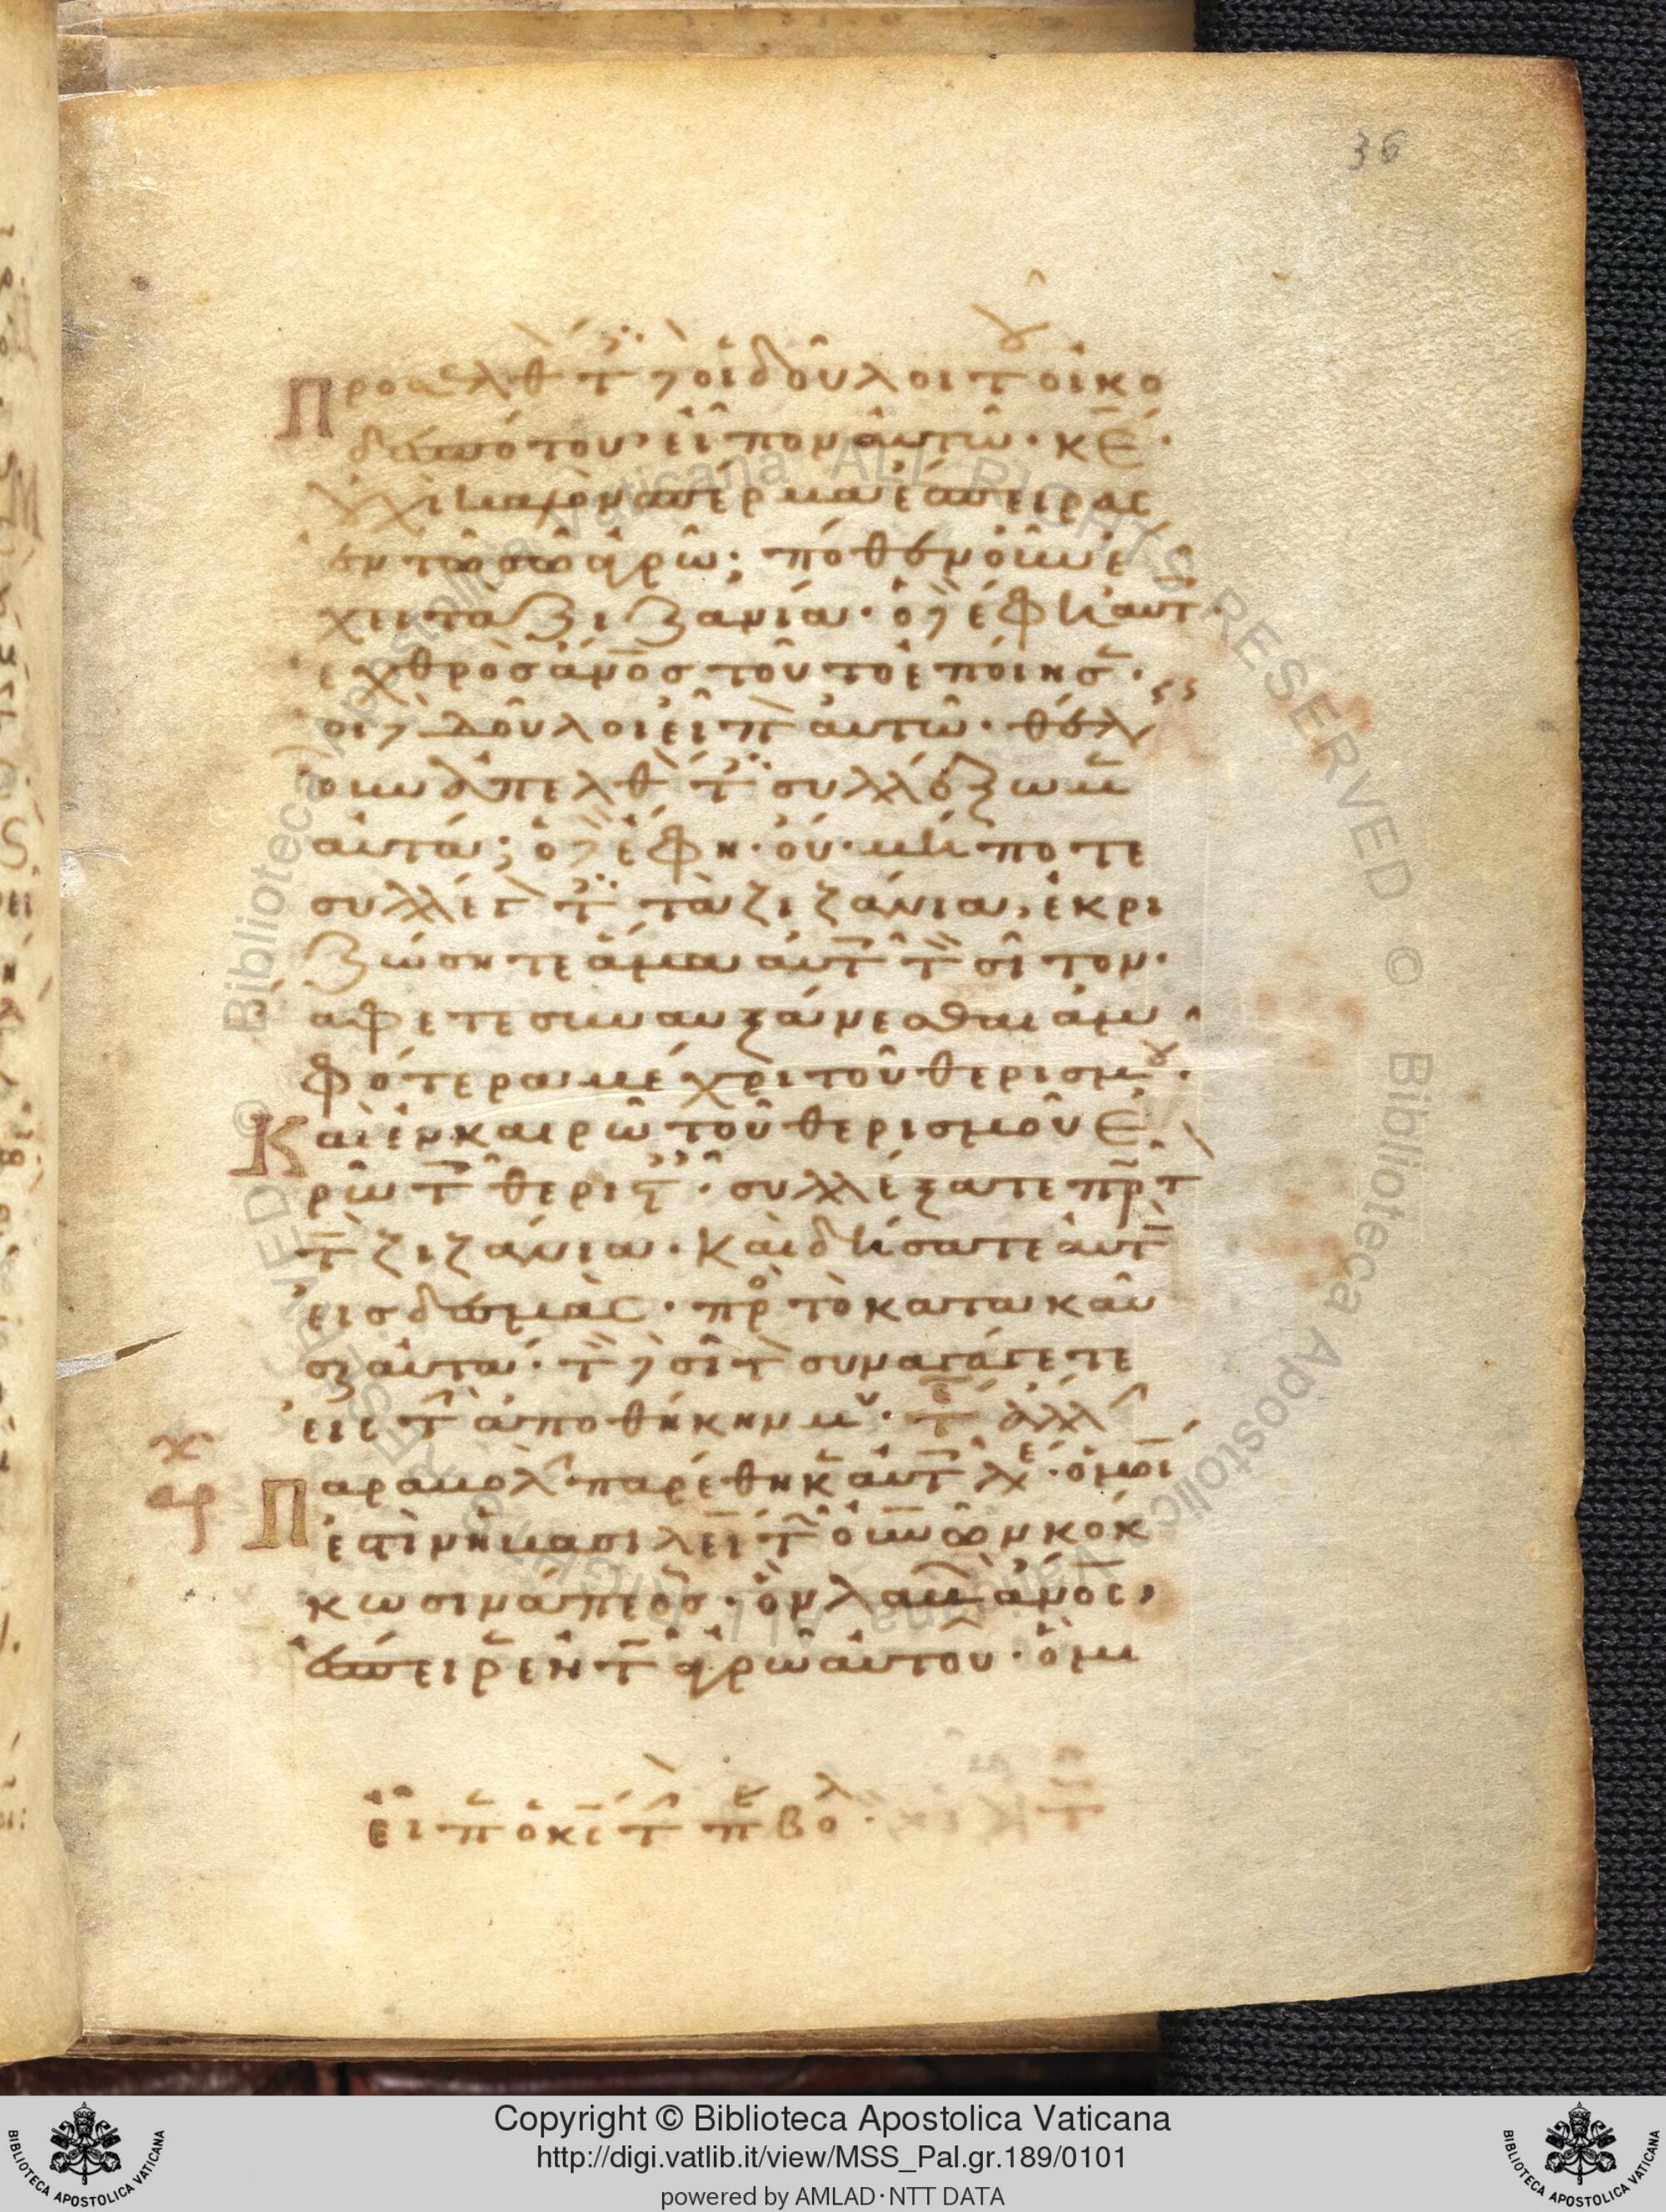 36
Προσελθτ οἱ δοῦλοι τ οἰκο
δεσπότου εἶπον αὐτῶ· κε·
οὐχὶ καλὸν σπέρμα ἔσπειρας
ἐν τῶ σῶ ἀγρῶ; πόθεν οὖν ἔ
χει τὰ ζιζάνια· ὁ δὲ ἔφη αὐτ·
ἐχθρὸς ἀνος τοῦτο ἐποίησ·
οἱ δὲ δοῦλοι εἶπ αὐτῶ· θέλεις
οὖν ἀπελθτ συλλέξωμ
αὐτά; ὁ δὲ ἔφη· οὔ· μήποτε
συλλέγτ τὰ ζιζάνια, ἐκρι
ζώσητε ἅμα αὐτ τ σῖτον·
ἄφετε συναυξάνεσθαι ἀμ
φότερα μέχρι τοῦ θερισμου·
Καὶ ἐν καιρῶ τοῦ θερισμοῦ ἐ
ρῶ τ θεριστ· συλλέξατε πρτ
τ ζιζάνια· καὶ δήσατε αὐτ
εἰς δεσμὰς· πρ τὸ κατακαῦ
σαι αὐτά· τ δὲ σῖτ συναγάγετε
εἰς τ ἀποθήκην μου· τ ἄλλ
χ
αρ
Παραβολ παρέθηκ αὐτ λε· ὁμοί
ἐστὶν ἡ βασιλεί τ οὐνων κόκ
κω σινάπεος· ὃν λαβ ἄνος,
ἔσπειρεν τ ἀγρῶ αὐτοῦ· ὃ μι
εἶπ ὁ κς τ πβολ·
Copyright © Biblioteca Apostolica Vaticana
http://digi.vatlib.it/view/MSS_Pal.gr.189/0101
powered by AMLAD·NTT DATA
BIBLIOTECA APOSTOLICA VATICANA
BIBLIOTECA APOSTOLICA VATICANA
© Biblioteca Apostolica Vaticana ALL RIGHTS RESERVED